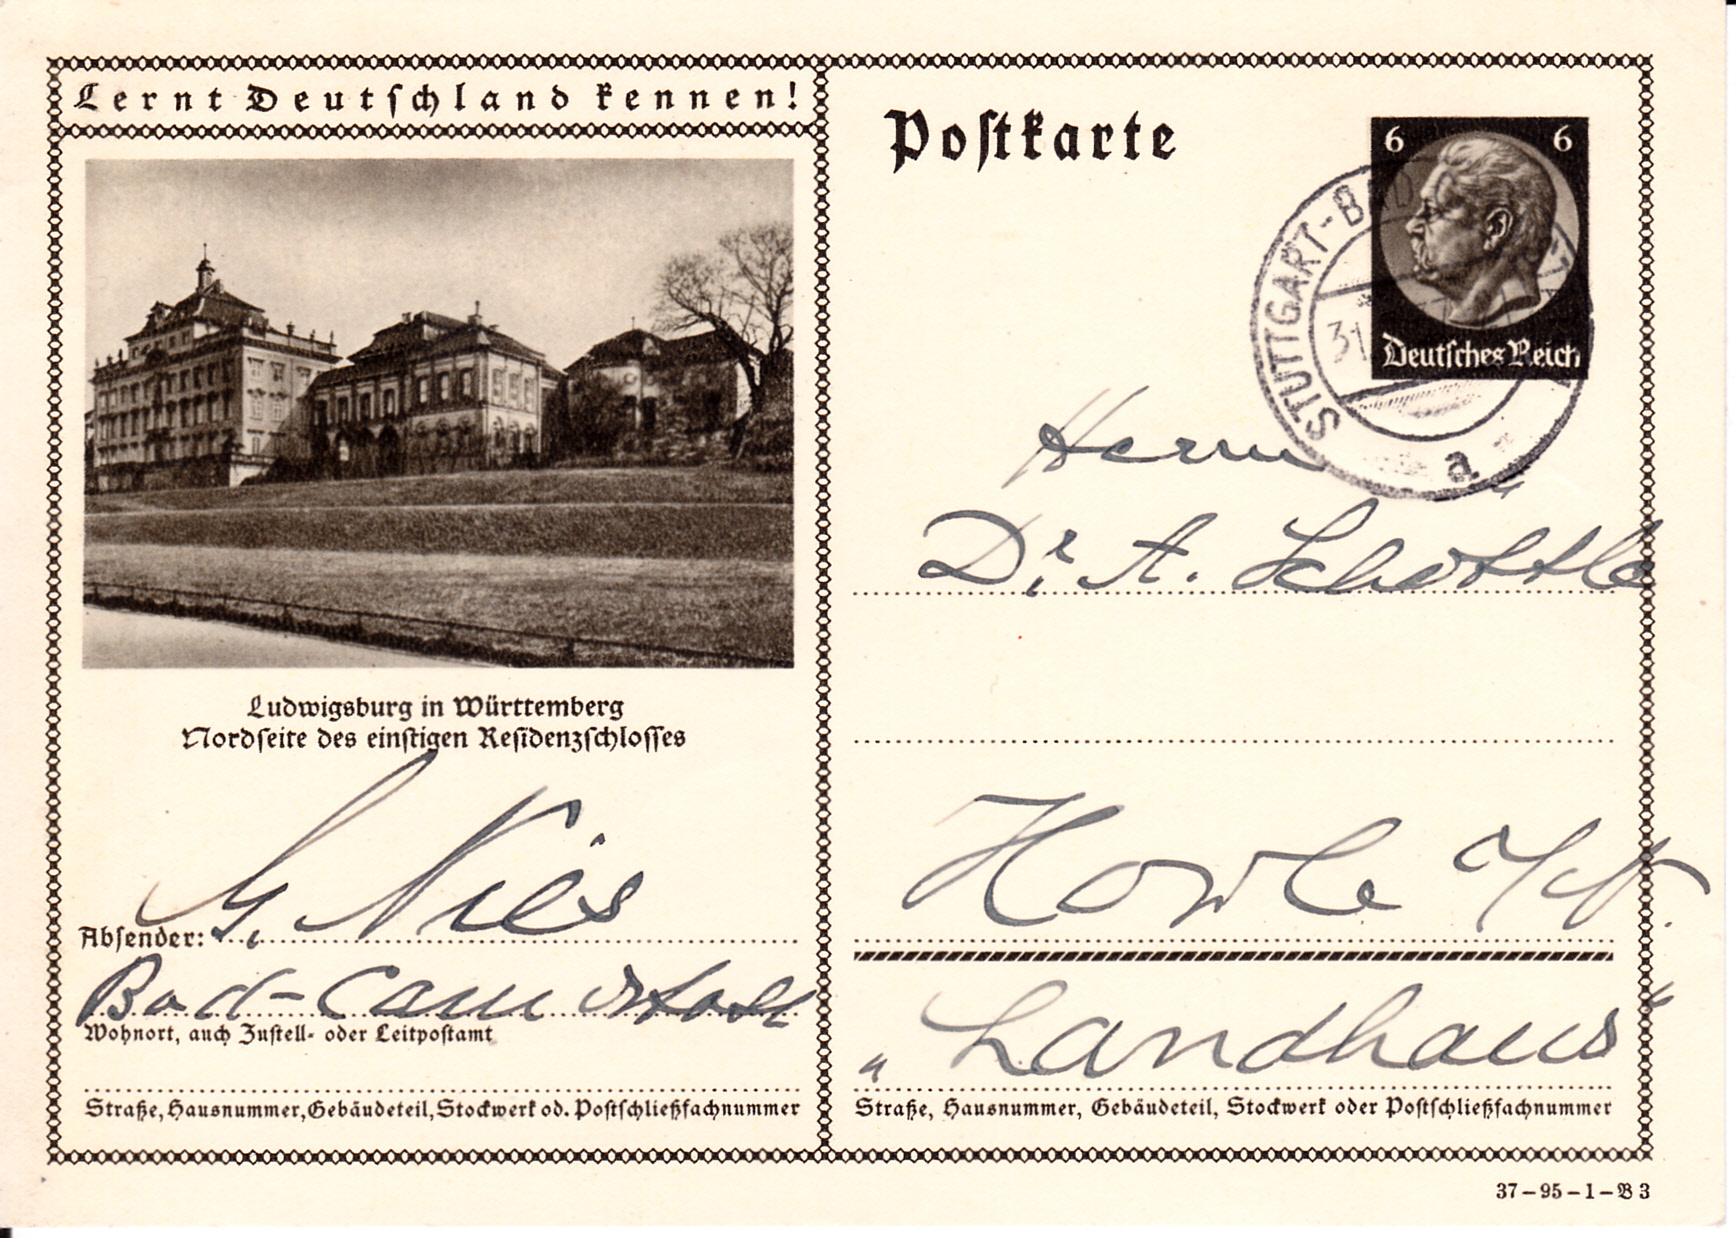 Lernt Deutschland kennen!
Ludwigsburg in Württemberg
Nordseite des einstigen Residenzschlosses
G. Nies
Absender:
Bad-Cannstatt
Wohnort, auch Zustell- oder Leitpostamt
Straße, Hausnummer, Gebäudeteil, Stockwerk od. Postschließfachnummer
Postkarte
6 6
Deutsches Reich
STUTTGART-BAD
31
a
Herrn
Dr. A. Schottle
„Landhaus“
Straße, Hausnummer, Gebäudeteil, Stockwerk oder Postschließfachnummer
37-95-1-B 3